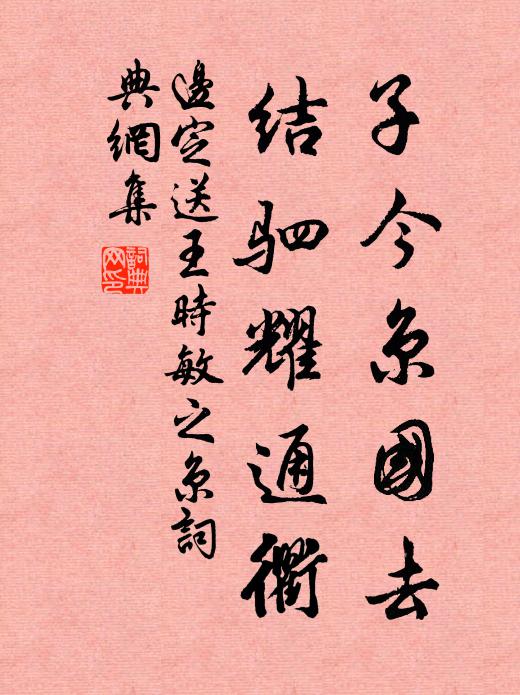 子今京國去
結駟耀通衢
邊定送王時敏之京詞
典網集
詞典
网印